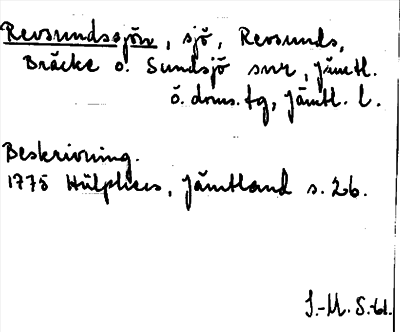 Revsundssjön, sjö, Revsunds,
Bräcke o. Sundsjö snr, Jämtl.
ö. doms. tg, Jämtl. l.
Beskrivning.
1775 Hülphers, Jämtland s. 26.
I.-M. S.-61.